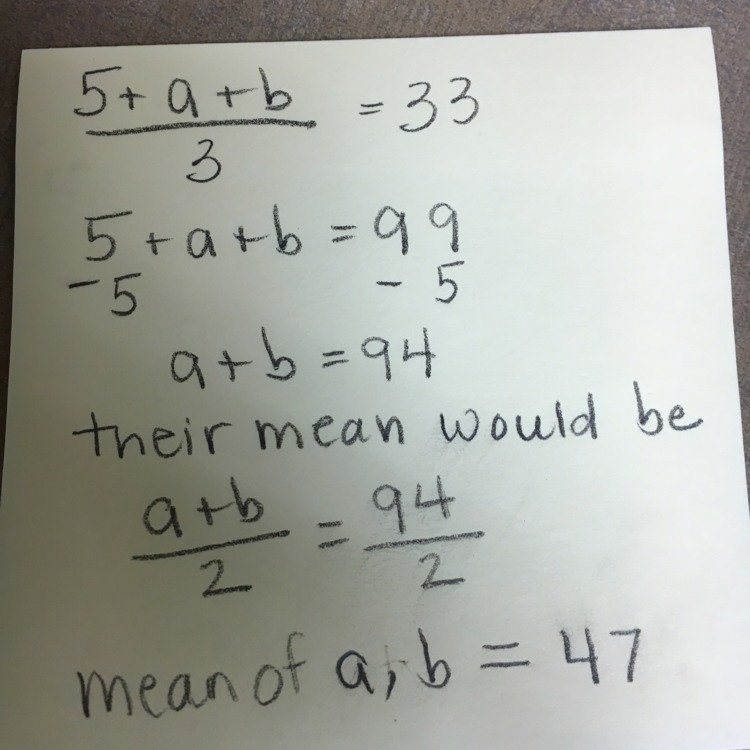 5+a+b = 33
3
5+a+b = 99
-5 - 5
a+b = 94
their mean would be
a+b = 94
2 2
mean of a, b = 47